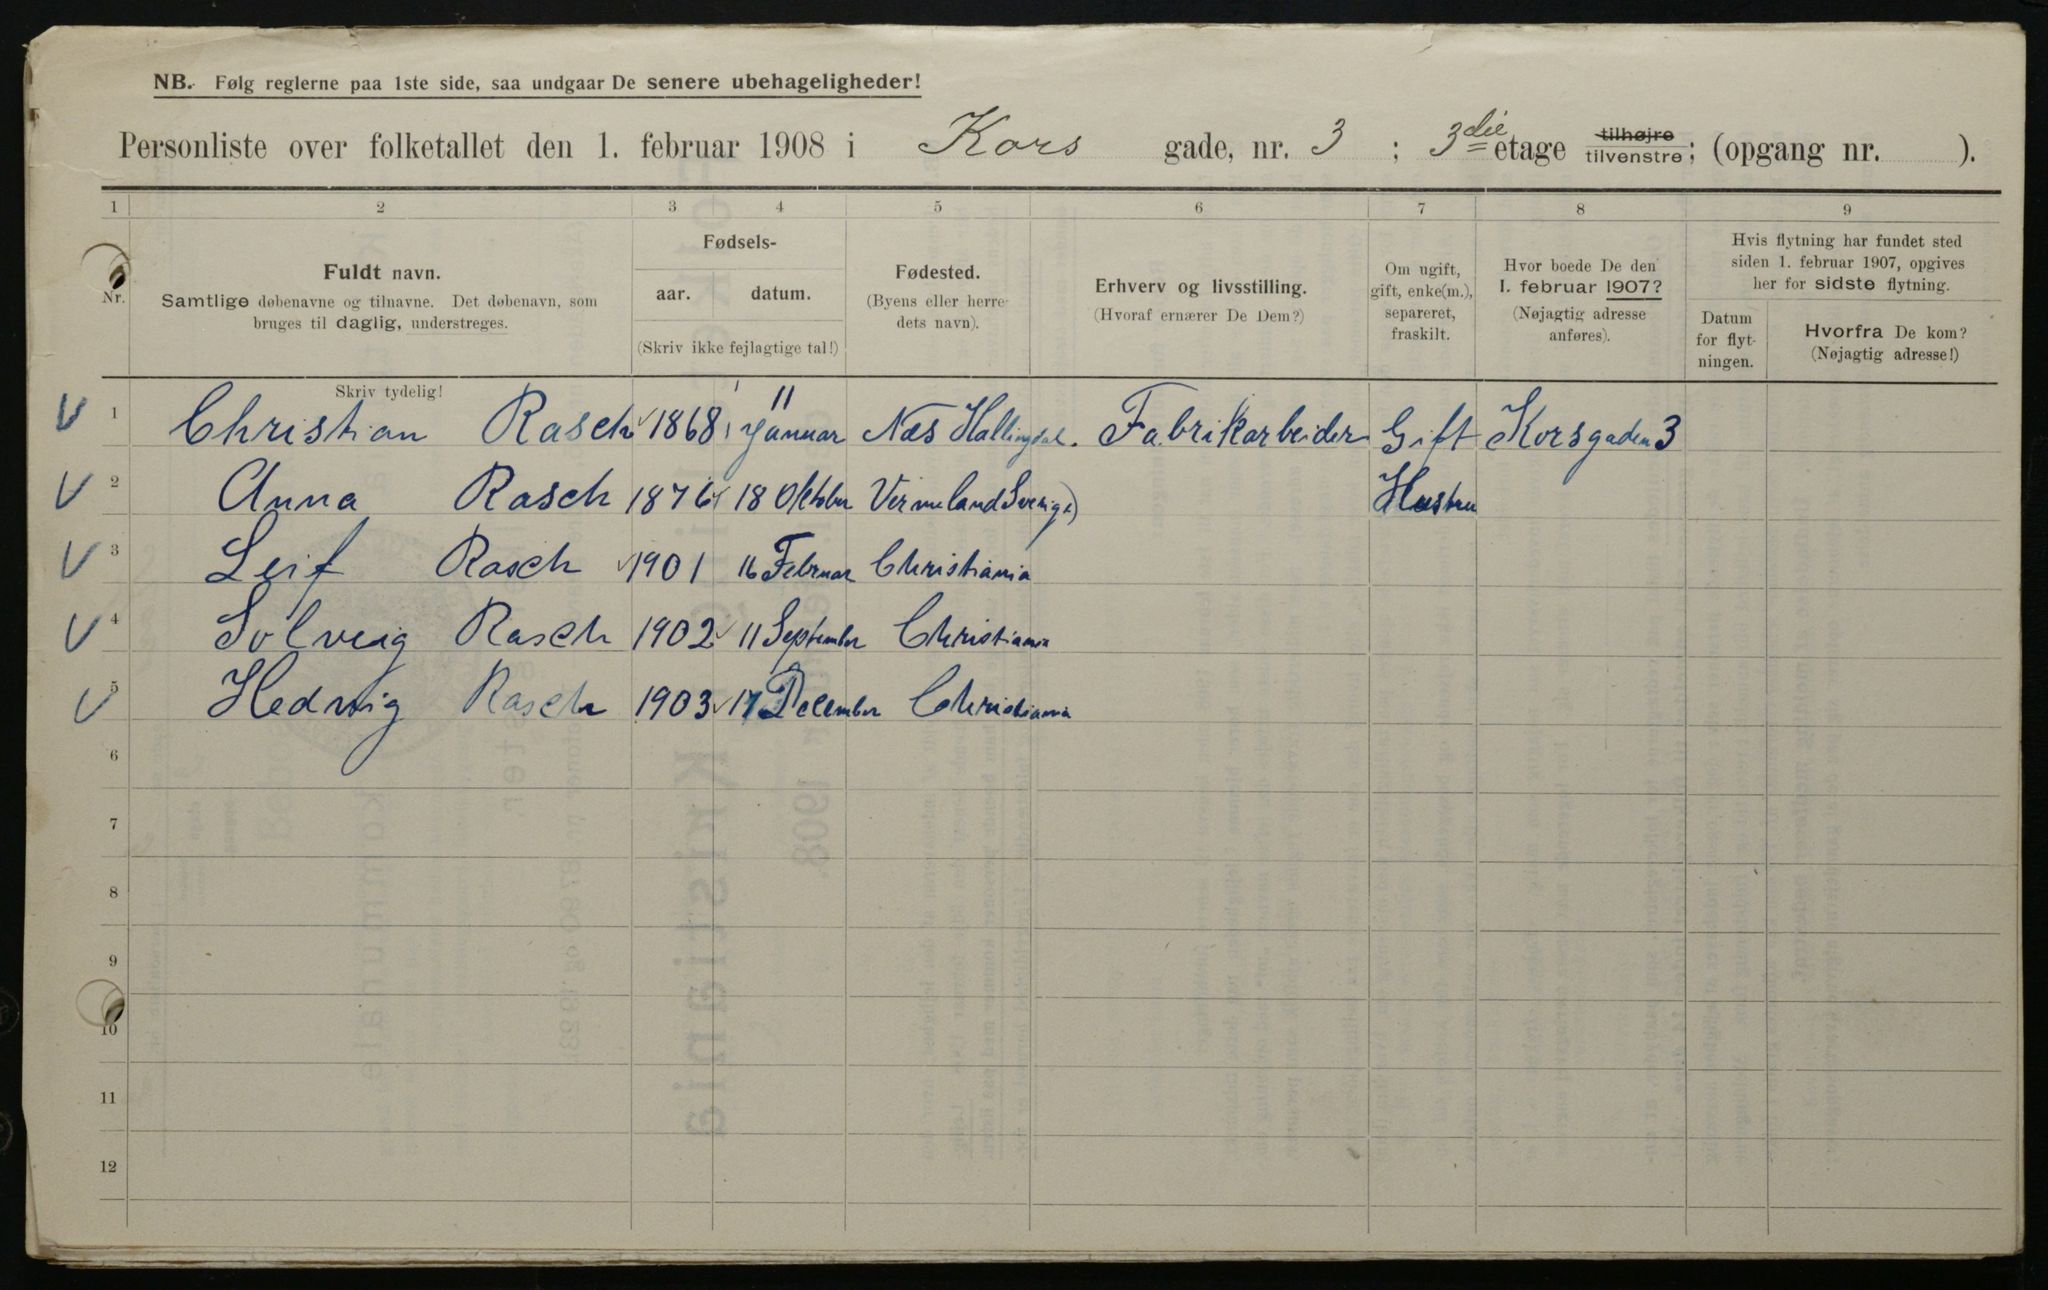 NB. Følg reglerne paa 1ste side, saa undgaar De senere ubehageligheder!
Personliste over folketallet den 1. februar 1908 i Kors gade, nr. 3 ; 3die etage tilhøjre tilvenstre; (opgang nr. ).
1 2 3 4 5 6 7 8 9
Nr.
Fuldt navn.
Samtlige døbenavne og tilnavne. Det døbenavn, som
bruges til daglig, understreges.
Skriv tydelig!
Fødsels-
aar. datum.
(Skriv ikke fejlagtige tal!)
Fødested.
(Byens eller herre-
dets navn).
Erhverv og livsstilling.
(Hvoraf ernærer De Dem?)
Om ugift,
gift, enke(m.),
separeret,
fraskilt.
Hvor boede De den
1. februar 1907?
(Nøjagtig adresse
anføres).
Hvis flytning har fundet sted
siden 1. februar 1907, opgives
her for sidste flytning.
Datum
for flyt-
ningen.
Hvorfra De kom?
(Nøjagtig adresse!)
1 Christian Rasch 1868 11 Januar Næs Hallingdal. Fabrikarbeider Gift Korsgaden 3
2 Anna Rasch 1876 18 Oktober Vermeland Sverige) Hustru
3 Leif Rasch 1901 16 Februar Christiania
4 Solveig Rasch 1902 11 September Christiania
5 Hedvig Rasch 1903 17 December Christiania
6
7
8
9
10
11
12